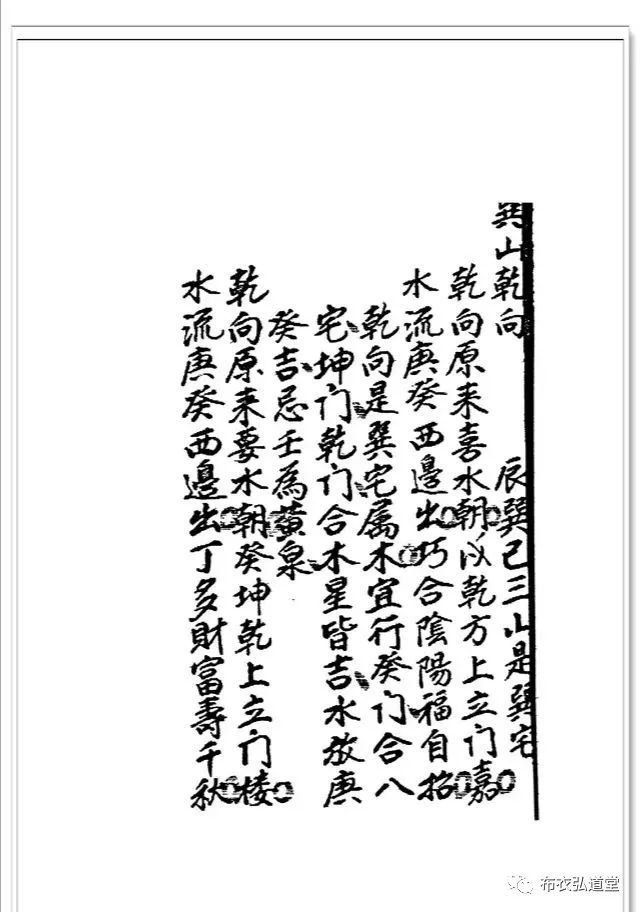 巽山乾向　辰巽巳三山是巽宅
乾向原来喜水朝乄乾方上立门嘉
水流庚癸西邊出巧合陰陽福自招
乾向是巽宅属木宜行癸门合八
宅坤门乾门合木星皆吉水放庚
癸吉忌壬為黄泉
乾向原来要水朝癸坤乾上立门楼
水流庚癸西邊出丁多財富壽千秋
布衣弘道堂